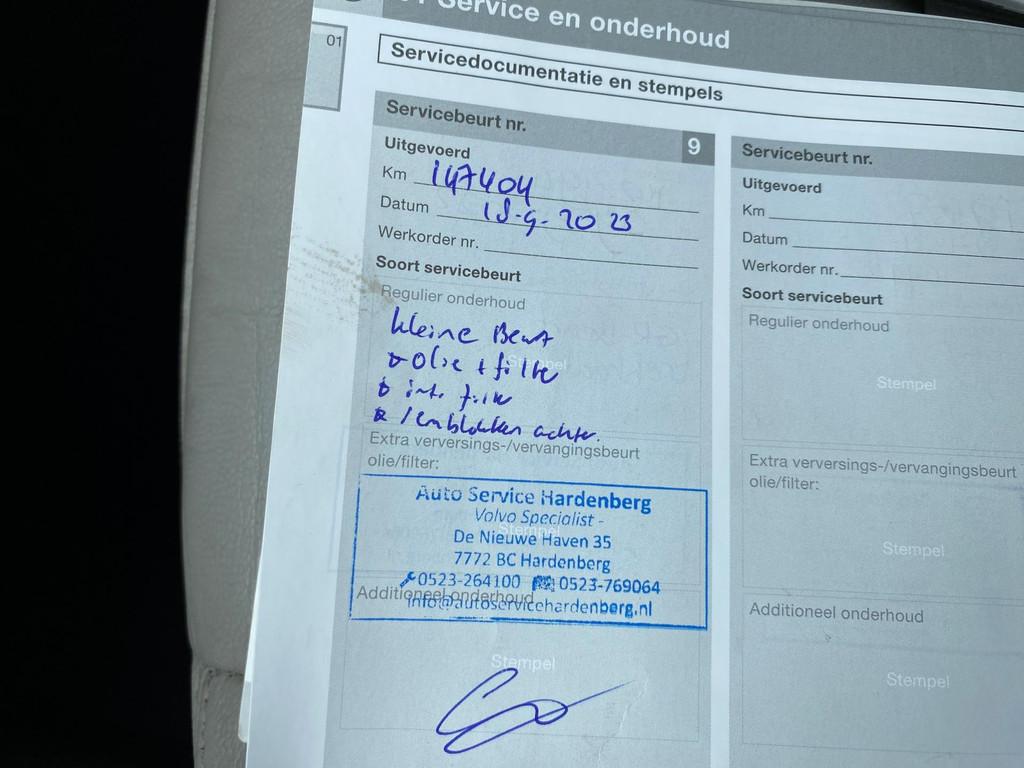 Service en onderhoud
01
Servicedocumentatie en stempels
Servicebeurt nr. 9
Uitgevoerd
Km 147404
Datum 18-9-2023
Werkorder nr.
Soort servicebeurt
Regulier onderhoud
kleine Beurt
olie + filter
Stempel
int. filter
remblokken achter.
Extra verversings-/vervangingsbeurt
olie/filter:
Auto Service Hardenberg
Volvo Specialist -
Stempel
De Nieuwe Haven 35
7772 BC Hardenberg
0523-264100 0523-769064
Additioneel onderhoud
info@autoservicehardenberg.nl
Stempel
Servicebeurt nr.
Uitgevoerd
Km
Datum
Werkorder nr.
Soort servicebeurt
Regulier onderhoud
Stempel
Extra verversings-/vervangingsbeurt
olie/filter:
Stempel
Additioneel onderhoud
Stempel